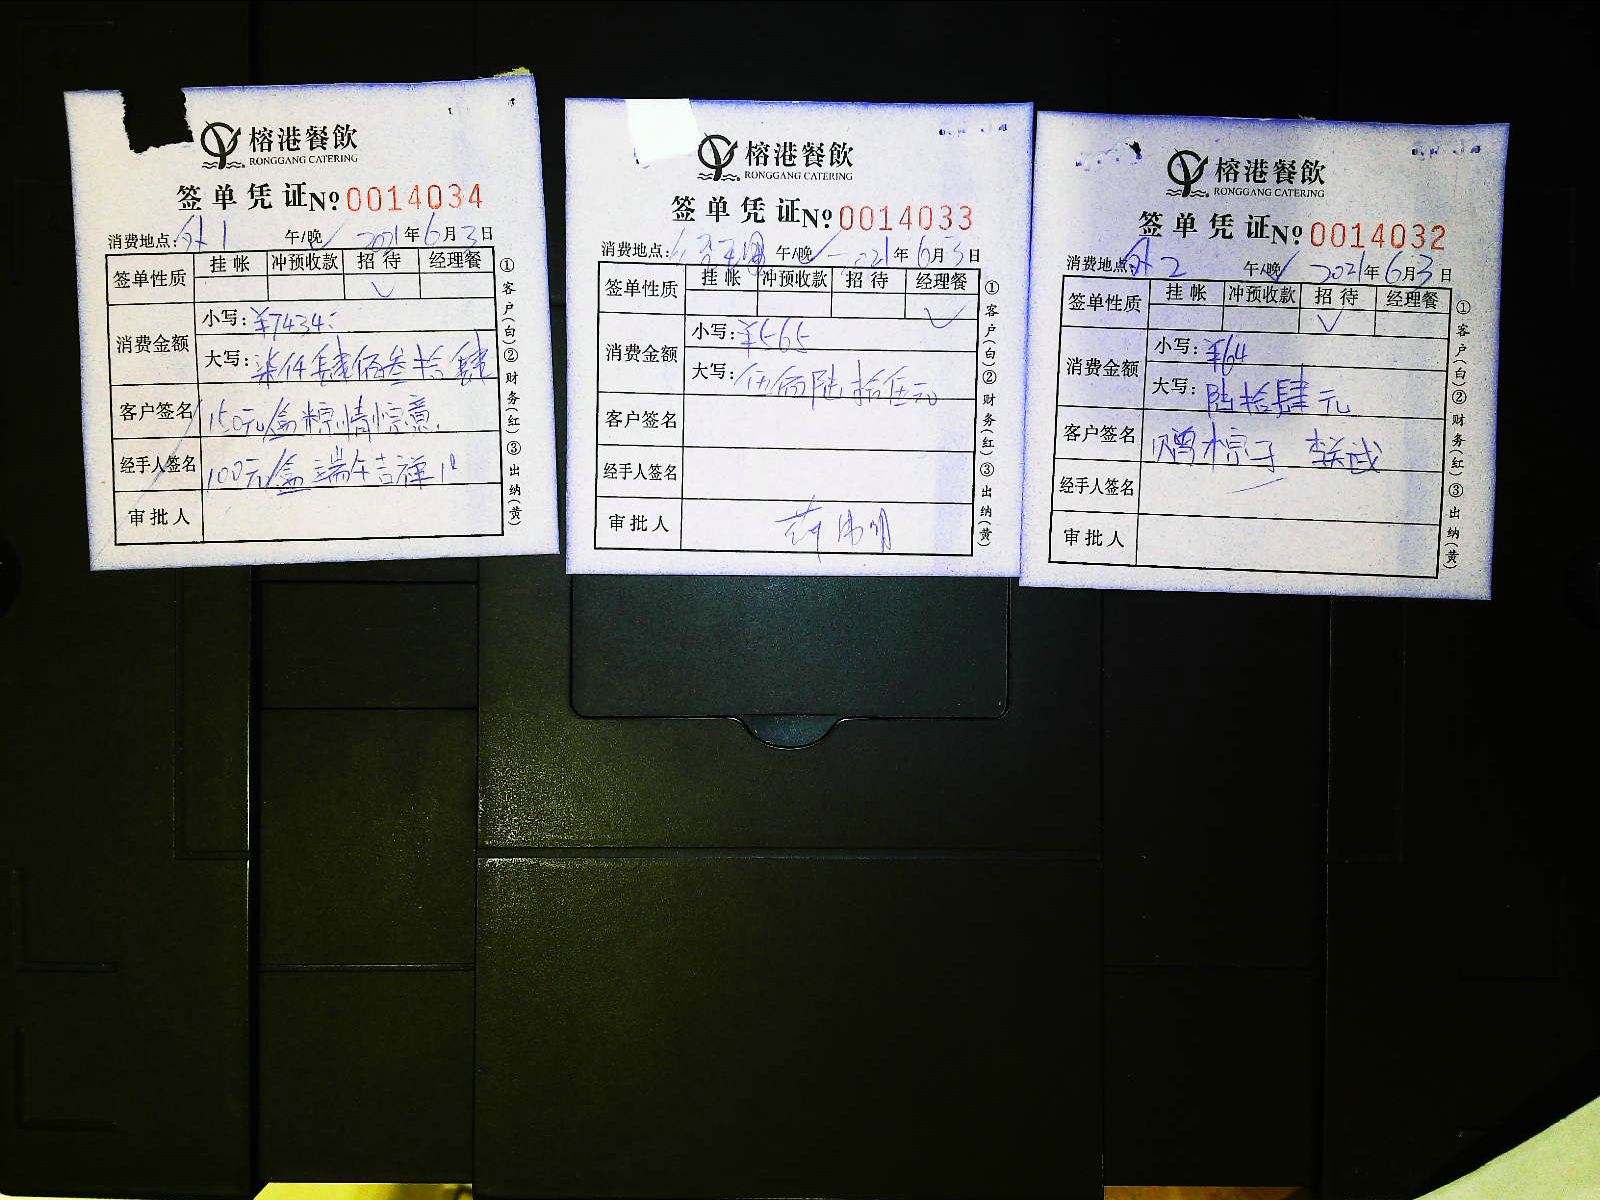 榕港餐飲
RONGGANG CATERING
签单凭证 №0014034
消费地点:外1 午/晚✓ 2021年6月3日
签单性质 挂帐 冲预收款 招待 经理餐
✓
消费金额 小写:¥7434:
大写:柒仟肆佰叁拾肆
客户签名 150元/盒粽情粽意
经手人签名 100元/盒端午吉祥
审批人
①客户(白)②财务(红)③出纳(黄)
榕港餐飲
RONGGANG CATERING
签单凭证 №0014033
消费地点: 午/晚✓ 2021年6月3日
签单性质 挂帐 冲预收款 招待 经理餐
✓
消费金额 小写:¥565
大写:伍佰陆拾伍元
客户签名
经手人签名
审批人
①客户(白)②财务(红)③出纳(黄)
榕港餐飲
RONGGANG CATERING
签单凭证 №0014032
消费地点:外2 午/晚✓ 2021年6月3日
签单性质 挂帐 冲预收款 招待 经理餐
✓
消费金额 小写:¥64
大写:陆拾肆元
客户签名 赠粽子
经手人签名
审批人
①客户(白)②财务(红)③出纳(黄)